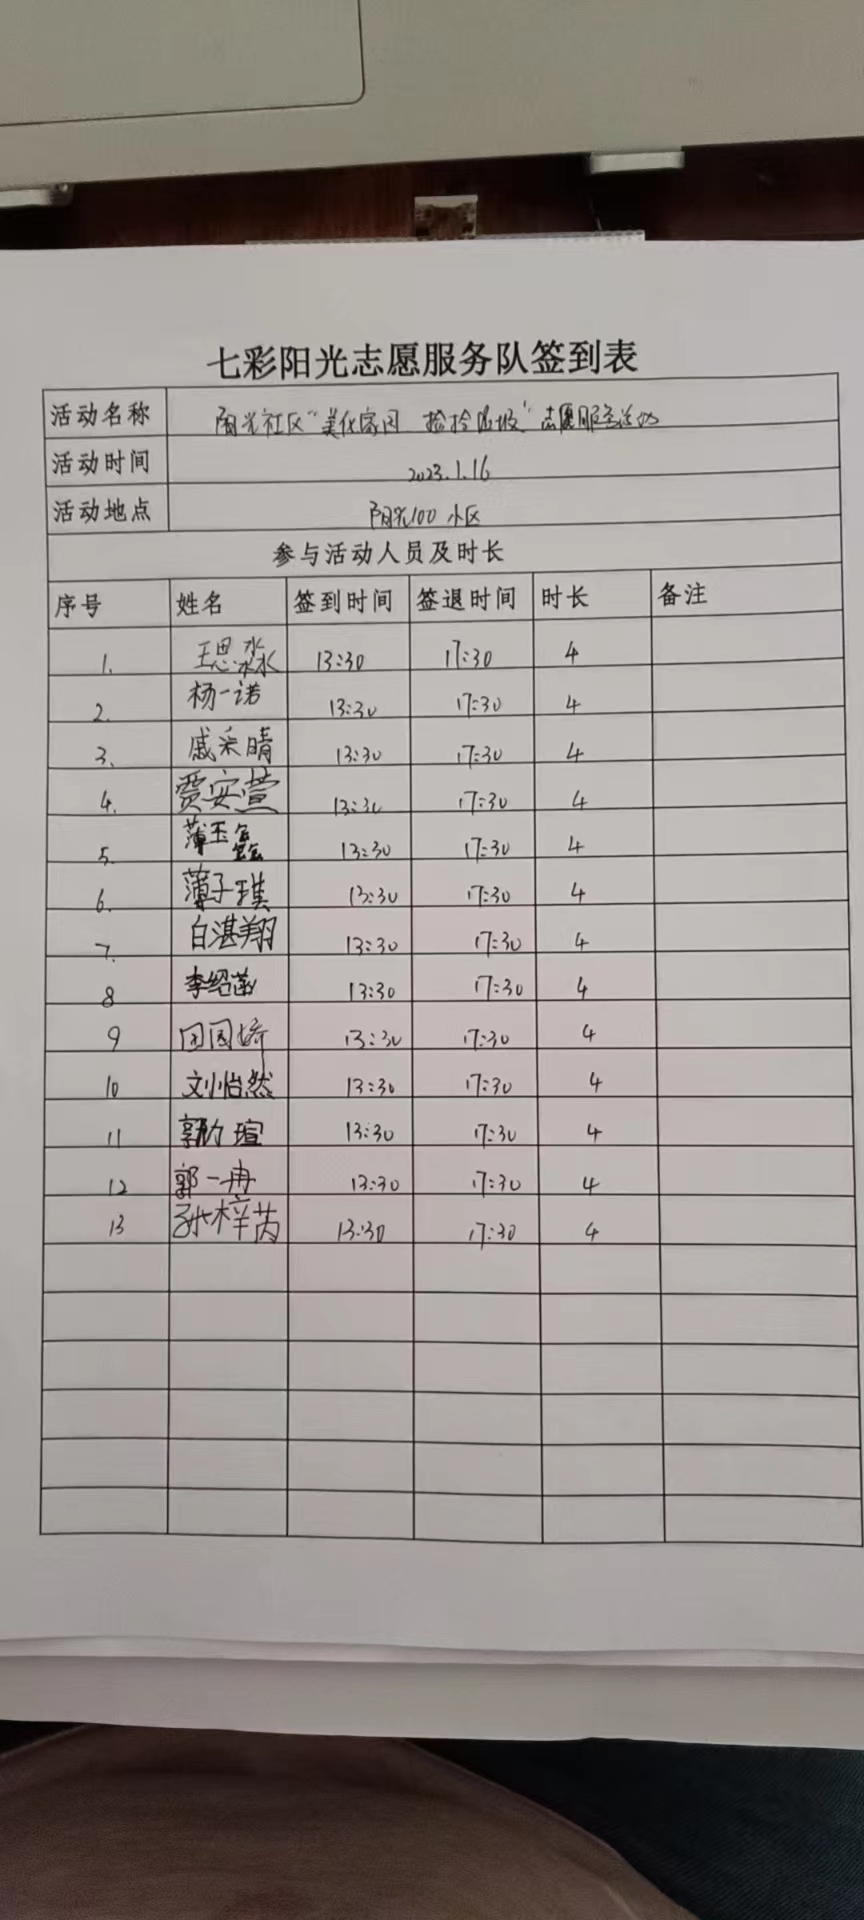 七彩阳光志愿服务队签到表
活动名称 阳光社区"美化家园 捡拾垃圾"志愿服务活动
活动时间 2023.1.16
活动地点 阳光100小区
参与活动人员及时长
序号 姓名 签到时间 签退时间 时长 备注
1. 王思淼 13:30 17:30 4
2. 杨一诺 13:30 17:30 4
3. 戚采晴 13:30 17:30 4
4. 贾安萱 13:30 17:30 4
5. 薄玉鑫 13:30 17:30 4
6. 薄子琪 13:30 17:30 4
7. 白湛翔 13:30 17:30 4
8 李绍菡 13:30 17:30 4
9 13:30 17:30 4
10 刘怡然 13:30 17:30 4
11 13:30 17:30 4
12 郭一冉 13:30 17:30 4
13 孙梓芮 13:30 17:30 4